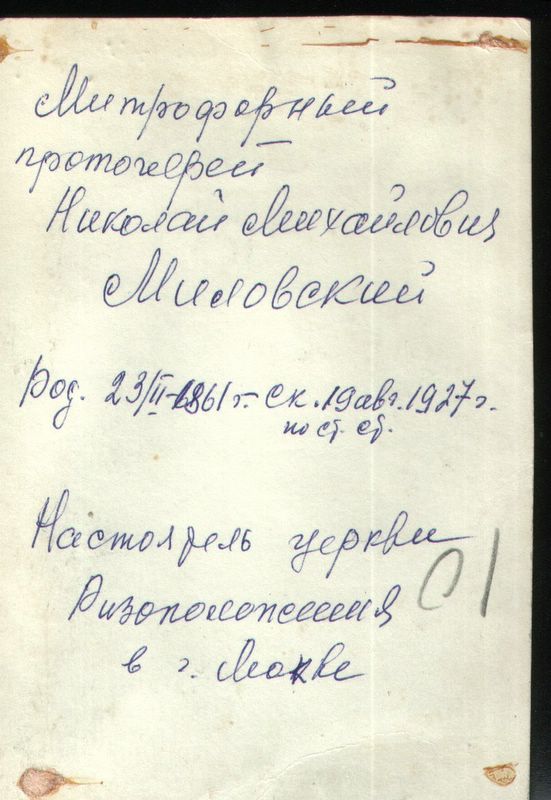 Митрофорный
протоиерей
Николай Михайлович
Миловский
Род. 23/II-1861 г. Ск. 19 авг. 1927 г.
по ст. ст.
Настоятель церкви
Ризоположения
01
в г. Москве